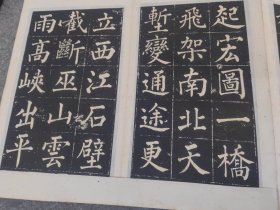 起宏圖一橋
飛架南北天
塹變通途更
立西江石壁
截斷巫山雲
雨高峽出平